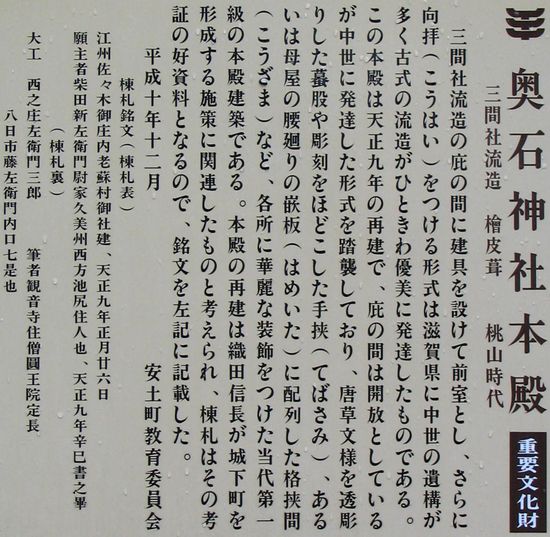 奥石神社本殿
重要文化財
三間社流造　檜皮葺　桃山時代
三間社流造の庇の間に建具を設けて前室とし、さらに
向拝(こうはい)をつける形式は滋賀県に中世の遺構が
多く古式の流造がひときわ優美に発達したものである。
この本殿は天正九年の再建で、庇の間は開放としている
が中世に発達した形式を踏襲しており、唐草文様を透彫
りした蟇股や彫刻をほどこした手挟(てばさみ)、ある
いは母屋の腰廻りの嵌板(はめいた)に配列した格挟間
(こうざま)など、各所に華麗な装飾をつけた当代第一
級の本殿建築である。本殿の再建は織田信長が城下町を
形成する施策に関連したものと考えられ、棟札はその考
証の好資料となるので、銘文を左記に記載した。
平成十年十二月　安土町教育委員会
棟札銘文(棟札表)
江州佐々木御庄内老蘇村御社建、天正九年正月廿六日
願主者柴田新左衛門尉家久美州西方池尻住人也、天正九年辛巳書之畢
(棟札裏)
大工　西之庄左衛門三郎　筆者観音寺住僧圓王院定長
八日市藤左衛門内口七是也